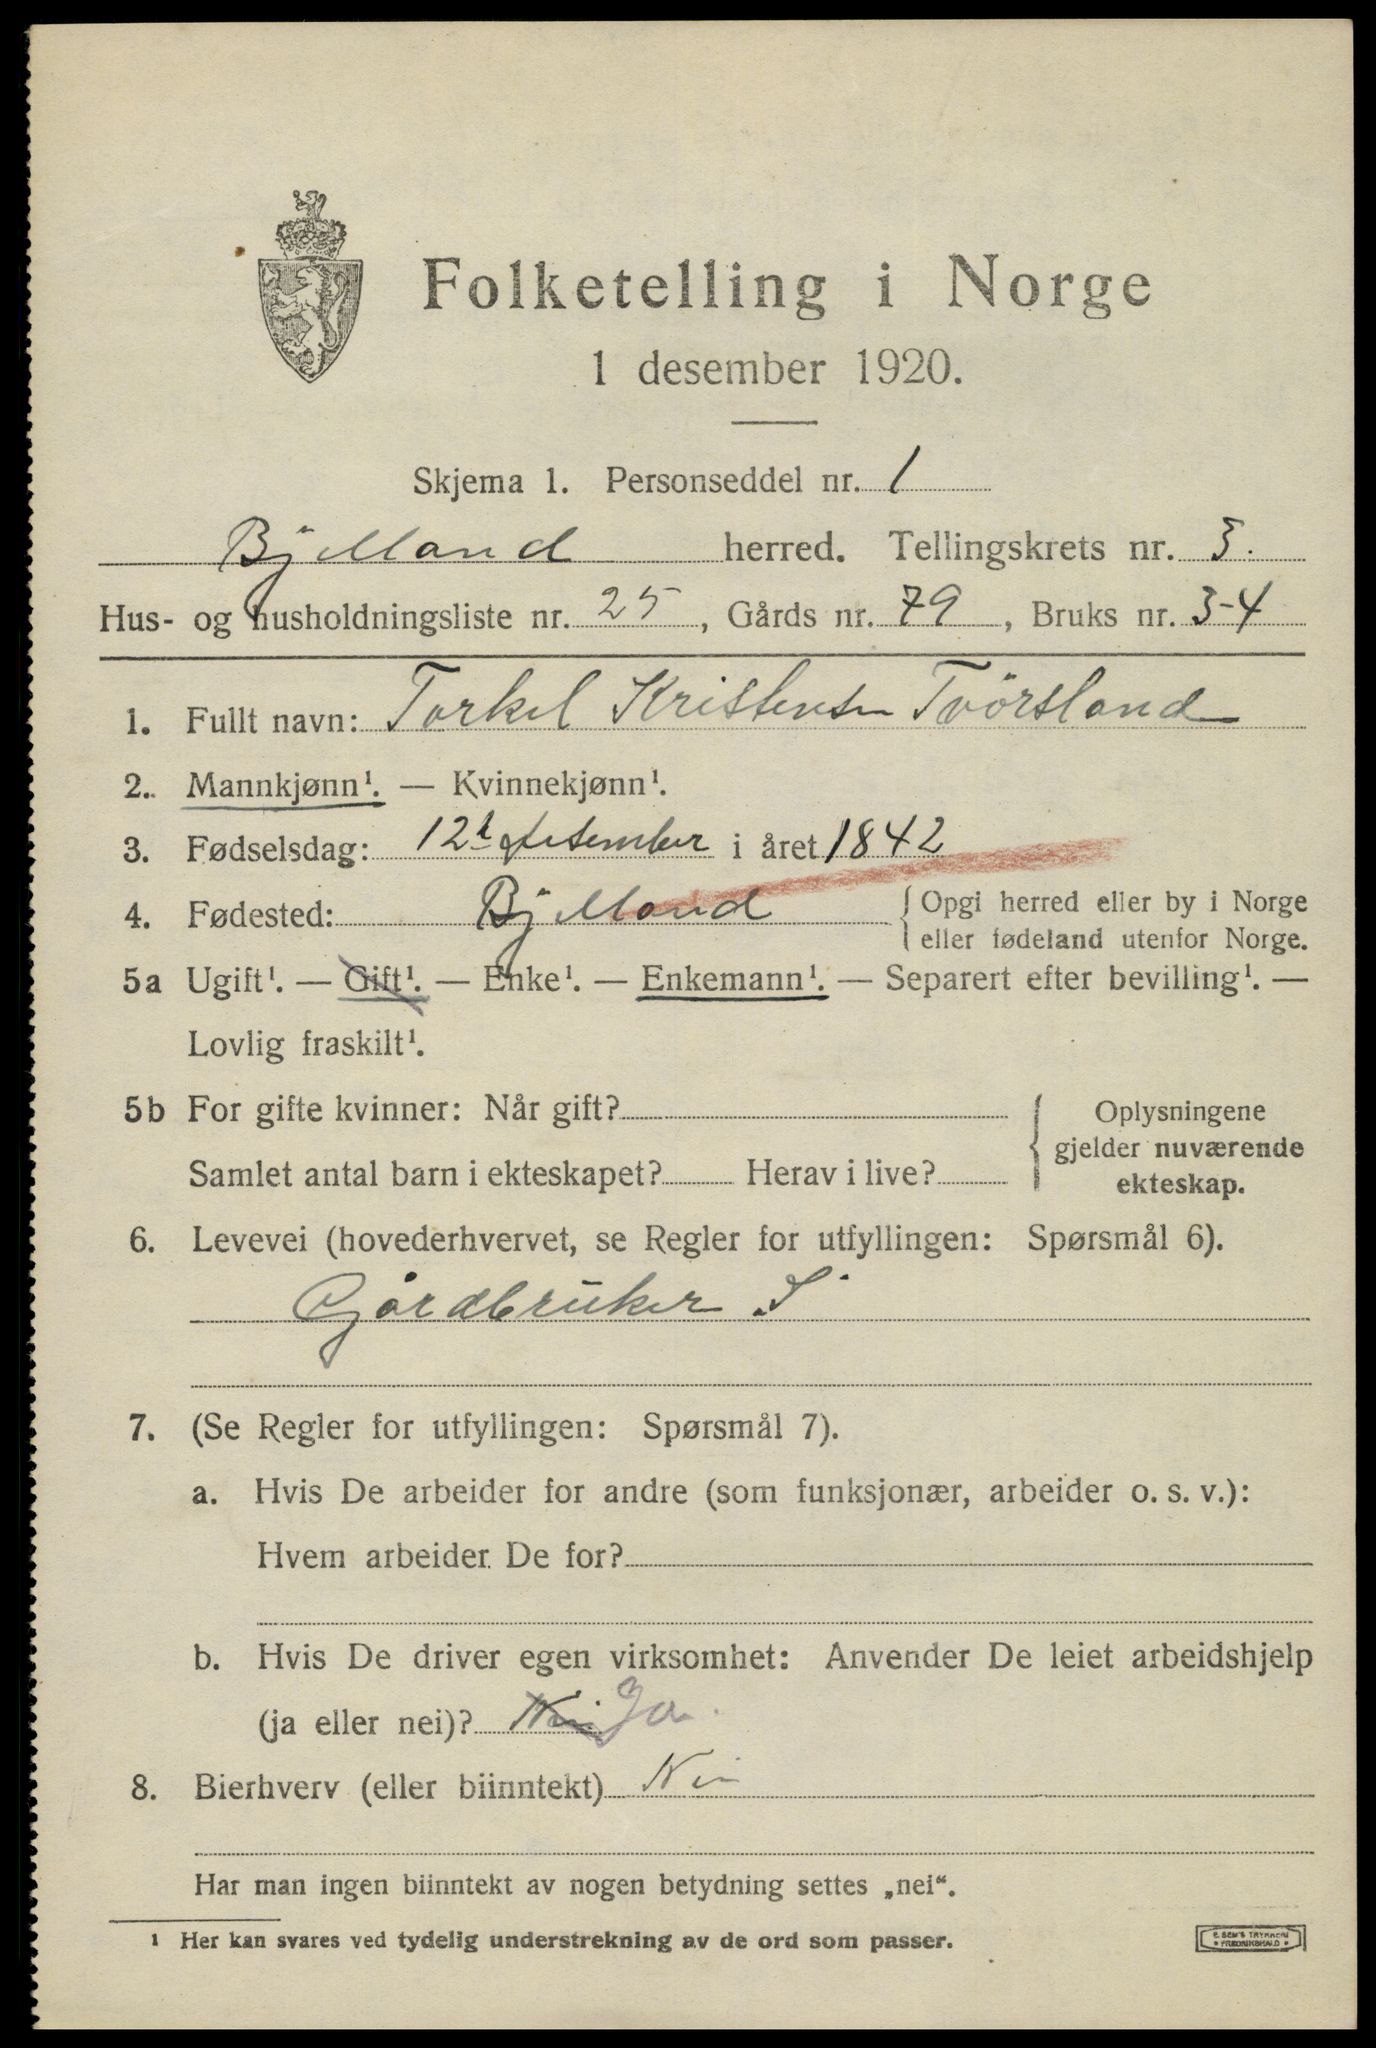 Folketelling i Norge
1 desember 1920.
Skjema 1. Personseddel nr. 1
Bjelland herred. Tellingskrets nr. 3.
Hus- og husholdningsliste nr. 25, Gårds nr. 79, Bruks nr. 3-4
1. Fullt navn: Torkel Kristensen Tvörsland
2. Mannkjønn¹. — Kvinnekjønn¹.
3. Fødselsdag: 12t desember i året 1842
4. Fødested: Bjelland {Opgi herred eller by i Norge
eller fødeland utenfor Norge.
5a Ugift¹. — Gift¹. — Enke¹. — Enkemann¹. — Separert efter bevilling¹. —
Lovlig fraskilt¹.
5b For gifte kvinner: Når gift?
Samlet antal barn i ekteskapet? Herav i live?
{Oplysningene
gjelder nuværende
ekteskap.
6. Levevei (hovederhvervet, se Regler for utfyllingen: Spørsmål 6).
Gårdbruker S
7. (Se Regler for utfyllingen: Spørsmål 7).
a. Hvis De arbeider for andre (som funksjonær, arbeider o. s. v.):
Hvem arbeider De for?
b. Hvis De driver egen virksomhet: Anvender De leiet arbeidshjelp
(ja eller nei)? Nei Ja.
8. Bierhverv (eller biinntekt) Nei
Har man ingen biinntekt av nogen betydning settes „nei“.
¹ Her kan svares ved tydelig understrekning av de ord som passer.
E. SEM'S TRYKKERI
• FREDRIKSHALD •